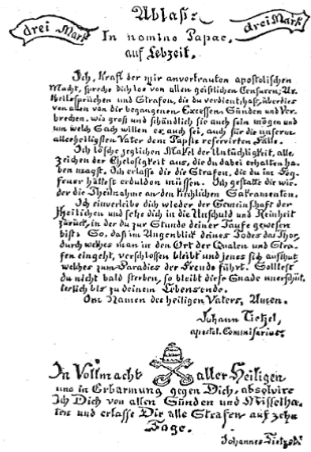 Ablaß:
drei Mark drei Mark
In nomino Papae,
auf Lebzeit.
Ich, Kraft der mir anvertrauten apostolischen
Macht, spreche dich los von allen geistlichen Censuren, Ur-
theilssprüchen und Strafen, die du verdient hast, überdies
von allen von dir begangenen Excessen, Sünden und Ver-
brechen, wie groß und schändlich sie auch sein mögen und
um welch Sach willen es auch sei, auch für die unserm
allerheiligsten Vater dem Papste reservirten Fälle.
Ich lösche jeglichen Makel der Untüchtigkeit, alle
Zeichen der Ehrlosigkeit aus, die du dabei erhalten ha-
ben magst. Ich erlasse dir die Strafen, die du im Feg-
feuer hättest erdulden müssen. Ich gestatte dir wie-
der die Theilnahme an den kirchlichen Sakramenten.
Ich einverleibe dich wieder der Gemeinschaft der
Heiligen und setze dich in die Unschuld und Reinheit
zurück, in der du zur Stunde deiner Taufe gewesen
bist. So, daß im Augenblick deines Todes das Thor,
durch welches man in den Ort der Qualen und Stra-
fen eingeht, verschlossen bleibt und jenes sich aufthut
welches zum Paradies der Freude führt. Solltest
du nicht bald sterben, so bleibt diese Gnade unerschüt-
terlich bis zu deinem Lebensende.
Im Namen des heiligen Vaters, Amen.
Johann Tietzel,
apostel. Commisarius.
In Vollmacht aller Heiligen
und in Erbarmung gegen Dich, absolvire
Ich Dich von allen Sünden und Missetha-
ten und erlasse Dir alle Strafen auf zehn
Tage.
Johannes Tietzel